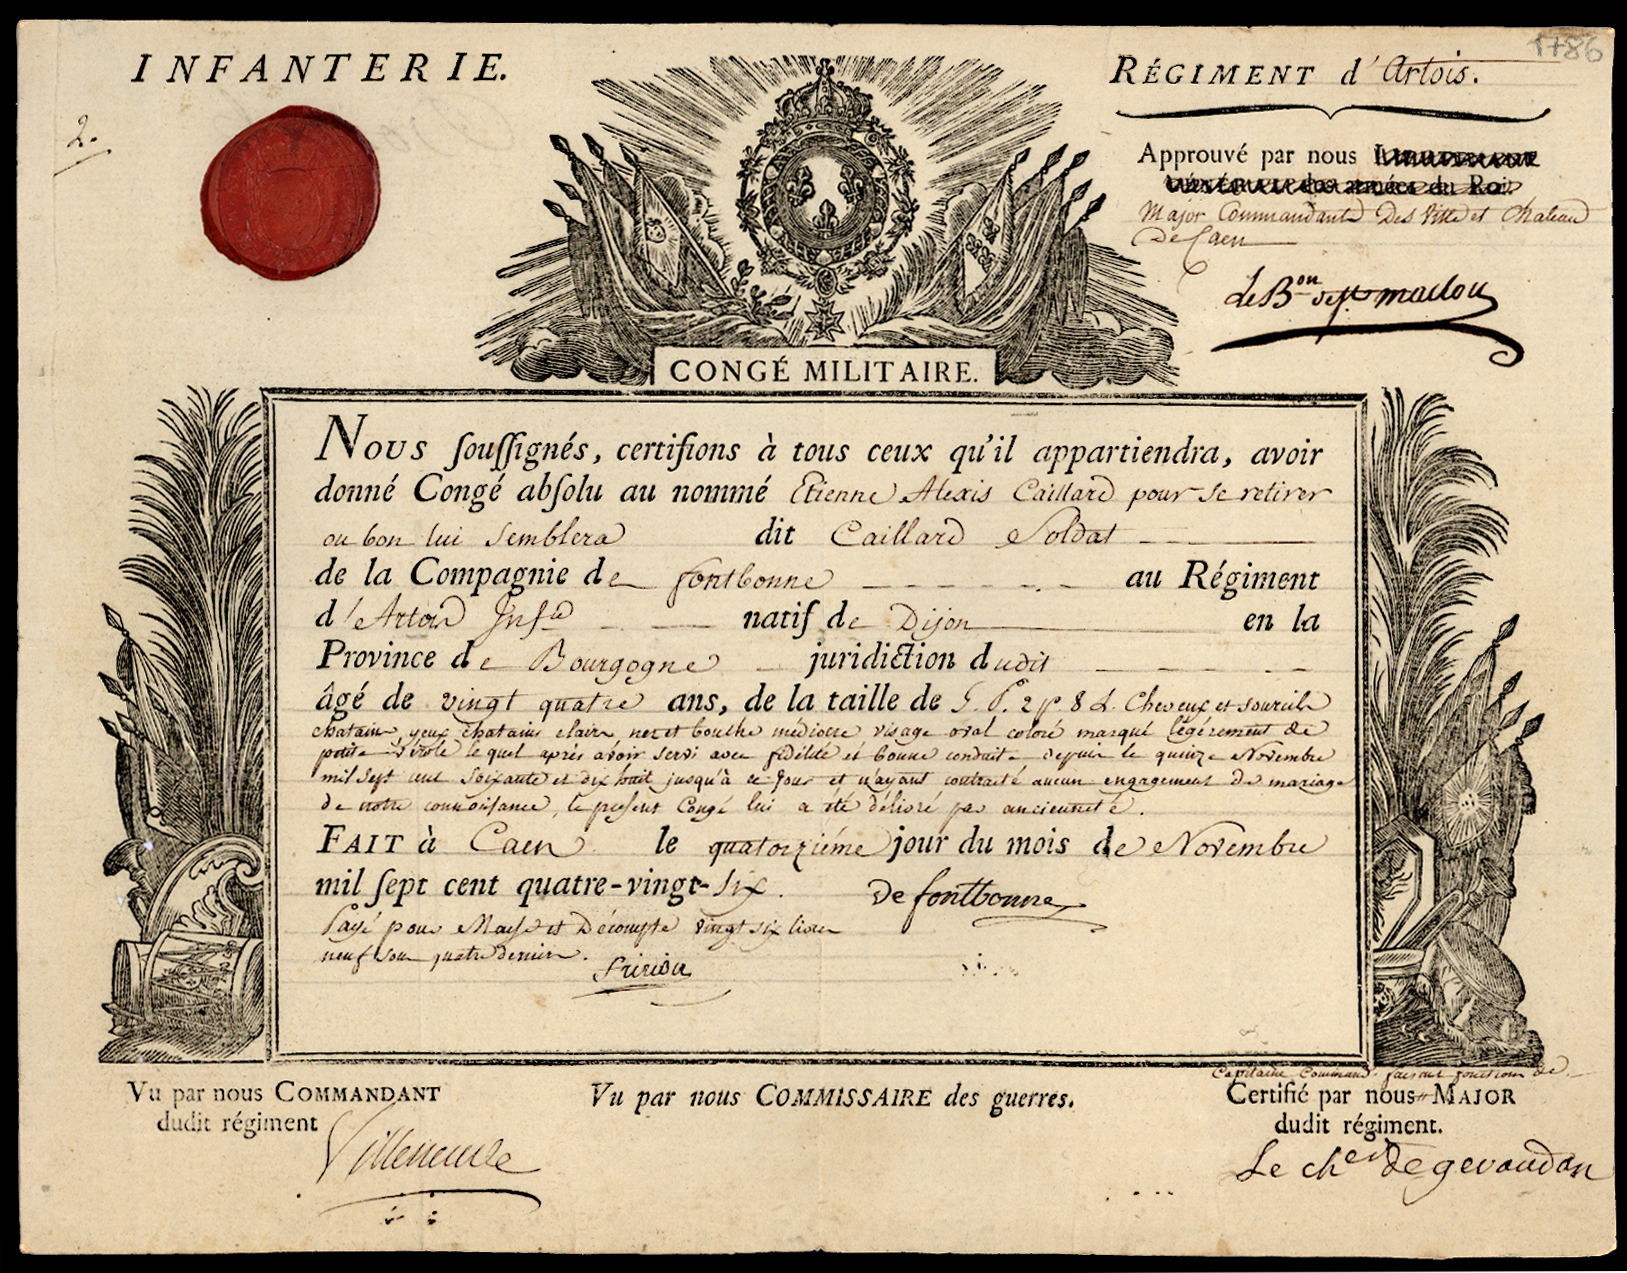 INFANTERIE.
RÉGIMENT d'Artois.
1786
2.
Approuvé par nous
des armées du Roi
Major Commandant Des Ville et Chateau
De Caen
le Bon de St maclou
CONGÉ MILITAIRE.
Nous souſſignés, certifions à tous ceux qu'il appartiendra, avoir
donné Congé abſolu au nommé Etienne Alexis Caillard pour se retirer
ou bon lui Semblera dit Caillard Soldat
de la Compagnie de fontbonne au Régiment
d'Artois Infie natif de Dijon en la
Province de Bourgogne juridiction dudit
âgé de vingt quatre ans, de la taille de 5. P. 2 p. 8 L. Cheveux et sourcils
chatains, yeux chatains clairs, nez et bouche médiocre visage oval coloré marqué légérement de
petite Verole le quel après avoir servi avec fidélité et bonne conduite depuis le quinze Novembre
mil sept cent soixante et dix huit jusqu'à ce jour et n'ayant contracté aucun engagement de mariage
de notre connoissance, le présent Congé lui a été délivré par ancienneté.
FAIT à Caen le quatorziéme jour du mois de Novembre
mil ſept cent quatre-vingt-six.
de fontbonne
Payé pour Masse et Décompte vingt six livres
neuf sous quatre deniers.
Vu par nous COMMANDANT
dudit régiment
Villeneuve
Vu par nous COMMISSAIRE des guerres.
Capitaine Command. faisant fonctions de
Certifié par nous MAJOR
dudit régiment.
Le cher De gevaudan